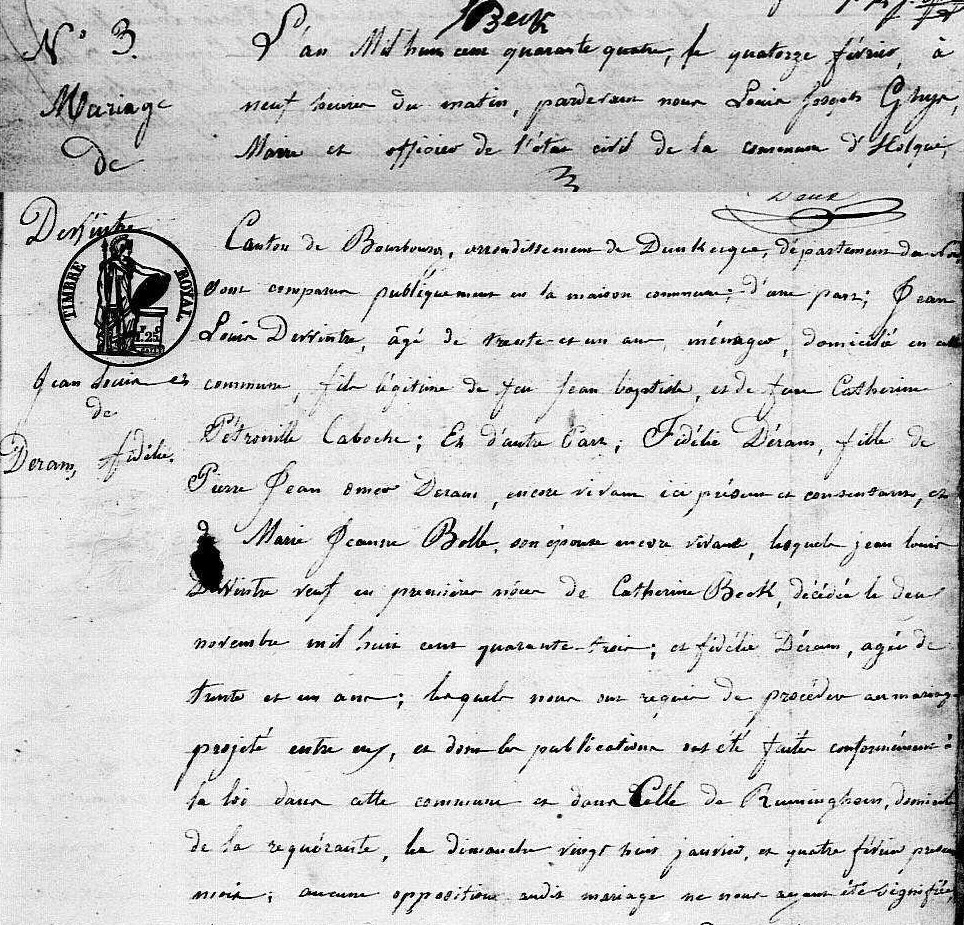 Beck
N° 3. L'an Mil huit cent quarante quatre, le quatorze février, à
Mariage neuf heures du matin, pardevant nous Louis Joseph Ghys,
de Maire et officier de l'état civil de la commune d'Holque,
Deux
Dewintre Canton de Bourbourg, arrondissement de Dunkerque, département du Nord
TIMBRE ROYAL sont comparus publiquement en la maison commune; d'une part; Jean
Louis Dewintre, âgé de trente-et un ans, ménager, domicilié en cette
Jean Louis et commune, fils légitime de feu Jean baptiste, et de feue Catherine
de Pétronille Caboche; Et d'autre Part; Fidélie Déram, fille de
Deram, fidélie. Pierre Jean omer Deram, encore vivant ici présent et consentant, et
de Marie Jeanne Bolle, son épouse encore vivant, lesquels jean louis
Dewintre veuf en premières nôces de Catherine Beck, décédée le deux
novembre mil huit cent quarante-trois; et fidélie Déram, agée de
trente et un ans; lesquels nous ont requis de procéder au mariage
projeté entre eux, et dont les publications ont été faites conformément à
la loi dans cette commune et dans Celle de Ruminghem, domicile
de la requérante, les dimanche vingt huit janvier, et quatre février présent
mois; aucune opposition audit mariage ne nous ayant été Signifiée,